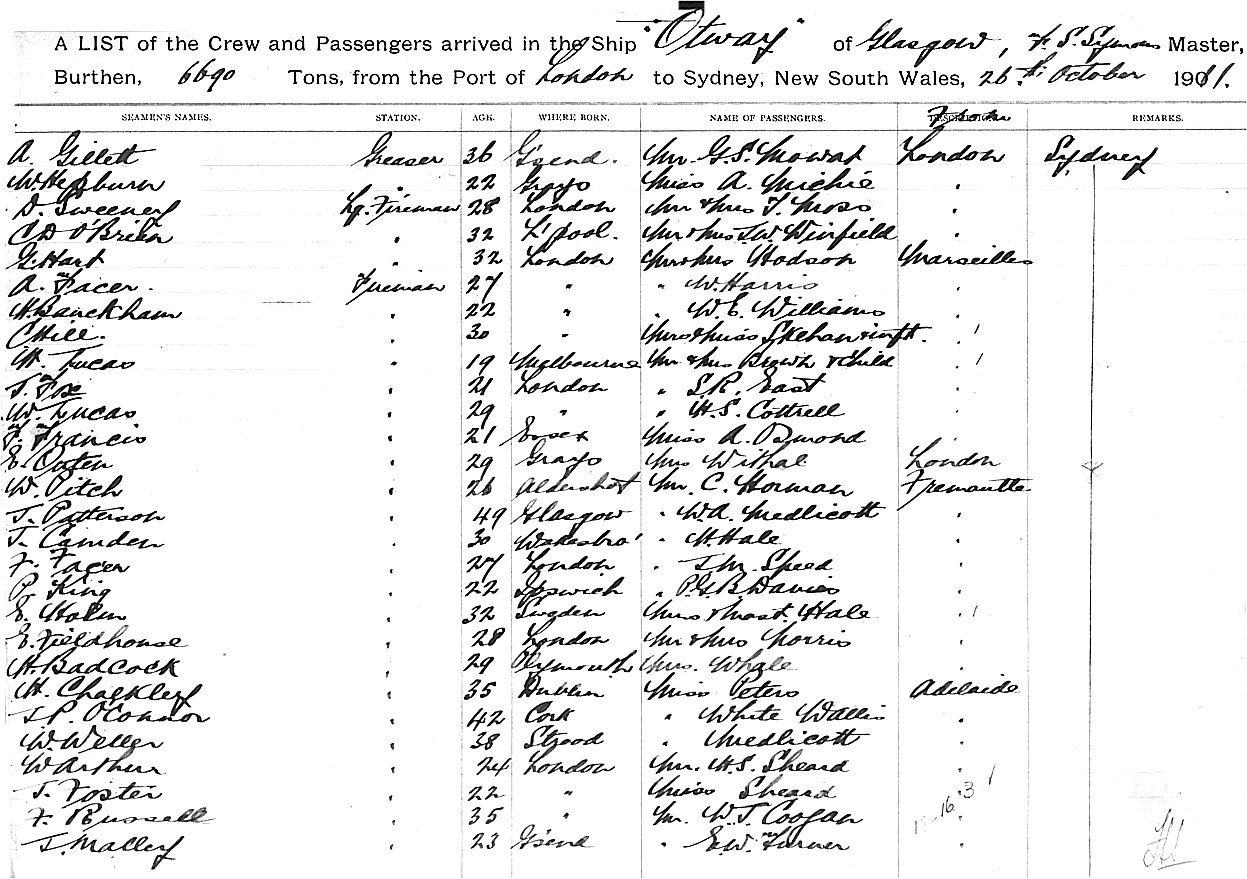 A LIST of the Crew and Passengers arrived in the Ship "Otway" of Glasgow, F. S. Symons Master,
Burthen, 6690 Tons, from the Port of London to Sydney, New South Wales, 26th October 1911.
SEAMEN'S NAMES. STATION. AGE. WHERE BORN. NAME OF PASSENGERS. From REMARKS.
A. Gillett Greaser 36 G'send. Mr. G. S. Mowat London Sydney
W. Hepburn " 22 Grays Miss A. Michie "
D. Sweeney Lg. Fireman 28 London Mr & Mrs T. Moss "
C D O'Brien " 32 L'pool. Mr & Mrs T. W. Winfield "
G. Hart " 32 London Mr & Mrs Hodson Marseilles
A. Facer. Fireman 27 " " W. Harris "
H. Banckham " 22 " " W. E. Williams "
C Hill. " 30 " Mrs & Miss Skehan & inft. " 1
H. Lucas " 19 Melbourne Mr & Mrs Brown & Child " 1
T. Fox " 21 London " S. R. East "
W. Lucas " 29 " " H. S. Cottrell "
F. Francis " 21 Essex Miss A. Osmond "
E. Outen " 29 Grays Mrs Withal London
W. Pitch " 26 Aldershot Mr. C. Horman Fremantle
J. Patterson " 49 Glasgow " W. A. Medlicott "
T. Camden " 30 " H. Hale "
F. Facer " 27 London " J. M. Speed "
P. King " 22 Ipswich " P. G. B. Davies "
E. Holm " 32 Sweden Mrs & Mast. Hale " 1
E. Fieldhouse " 28 London Mr & Mrs Morris "
H. Badcock " 29 Plymouth Mrs. Whale "
H. Chalkley " 35 Dublin Miss Peters Adelaide
J. P. O'Connor " 42 Cork " White Wallis "
W. Weller " 38 Strood " Medlicott "
W Arthur " 24 London Mr. H. S. Sheard "
J. Foster " 22 " Miss Sheard "
F. Russell " 35 " Mr. W. J. Coogan " 16. 3 1
J. Malley " 23 G'send " E. W. Turner "